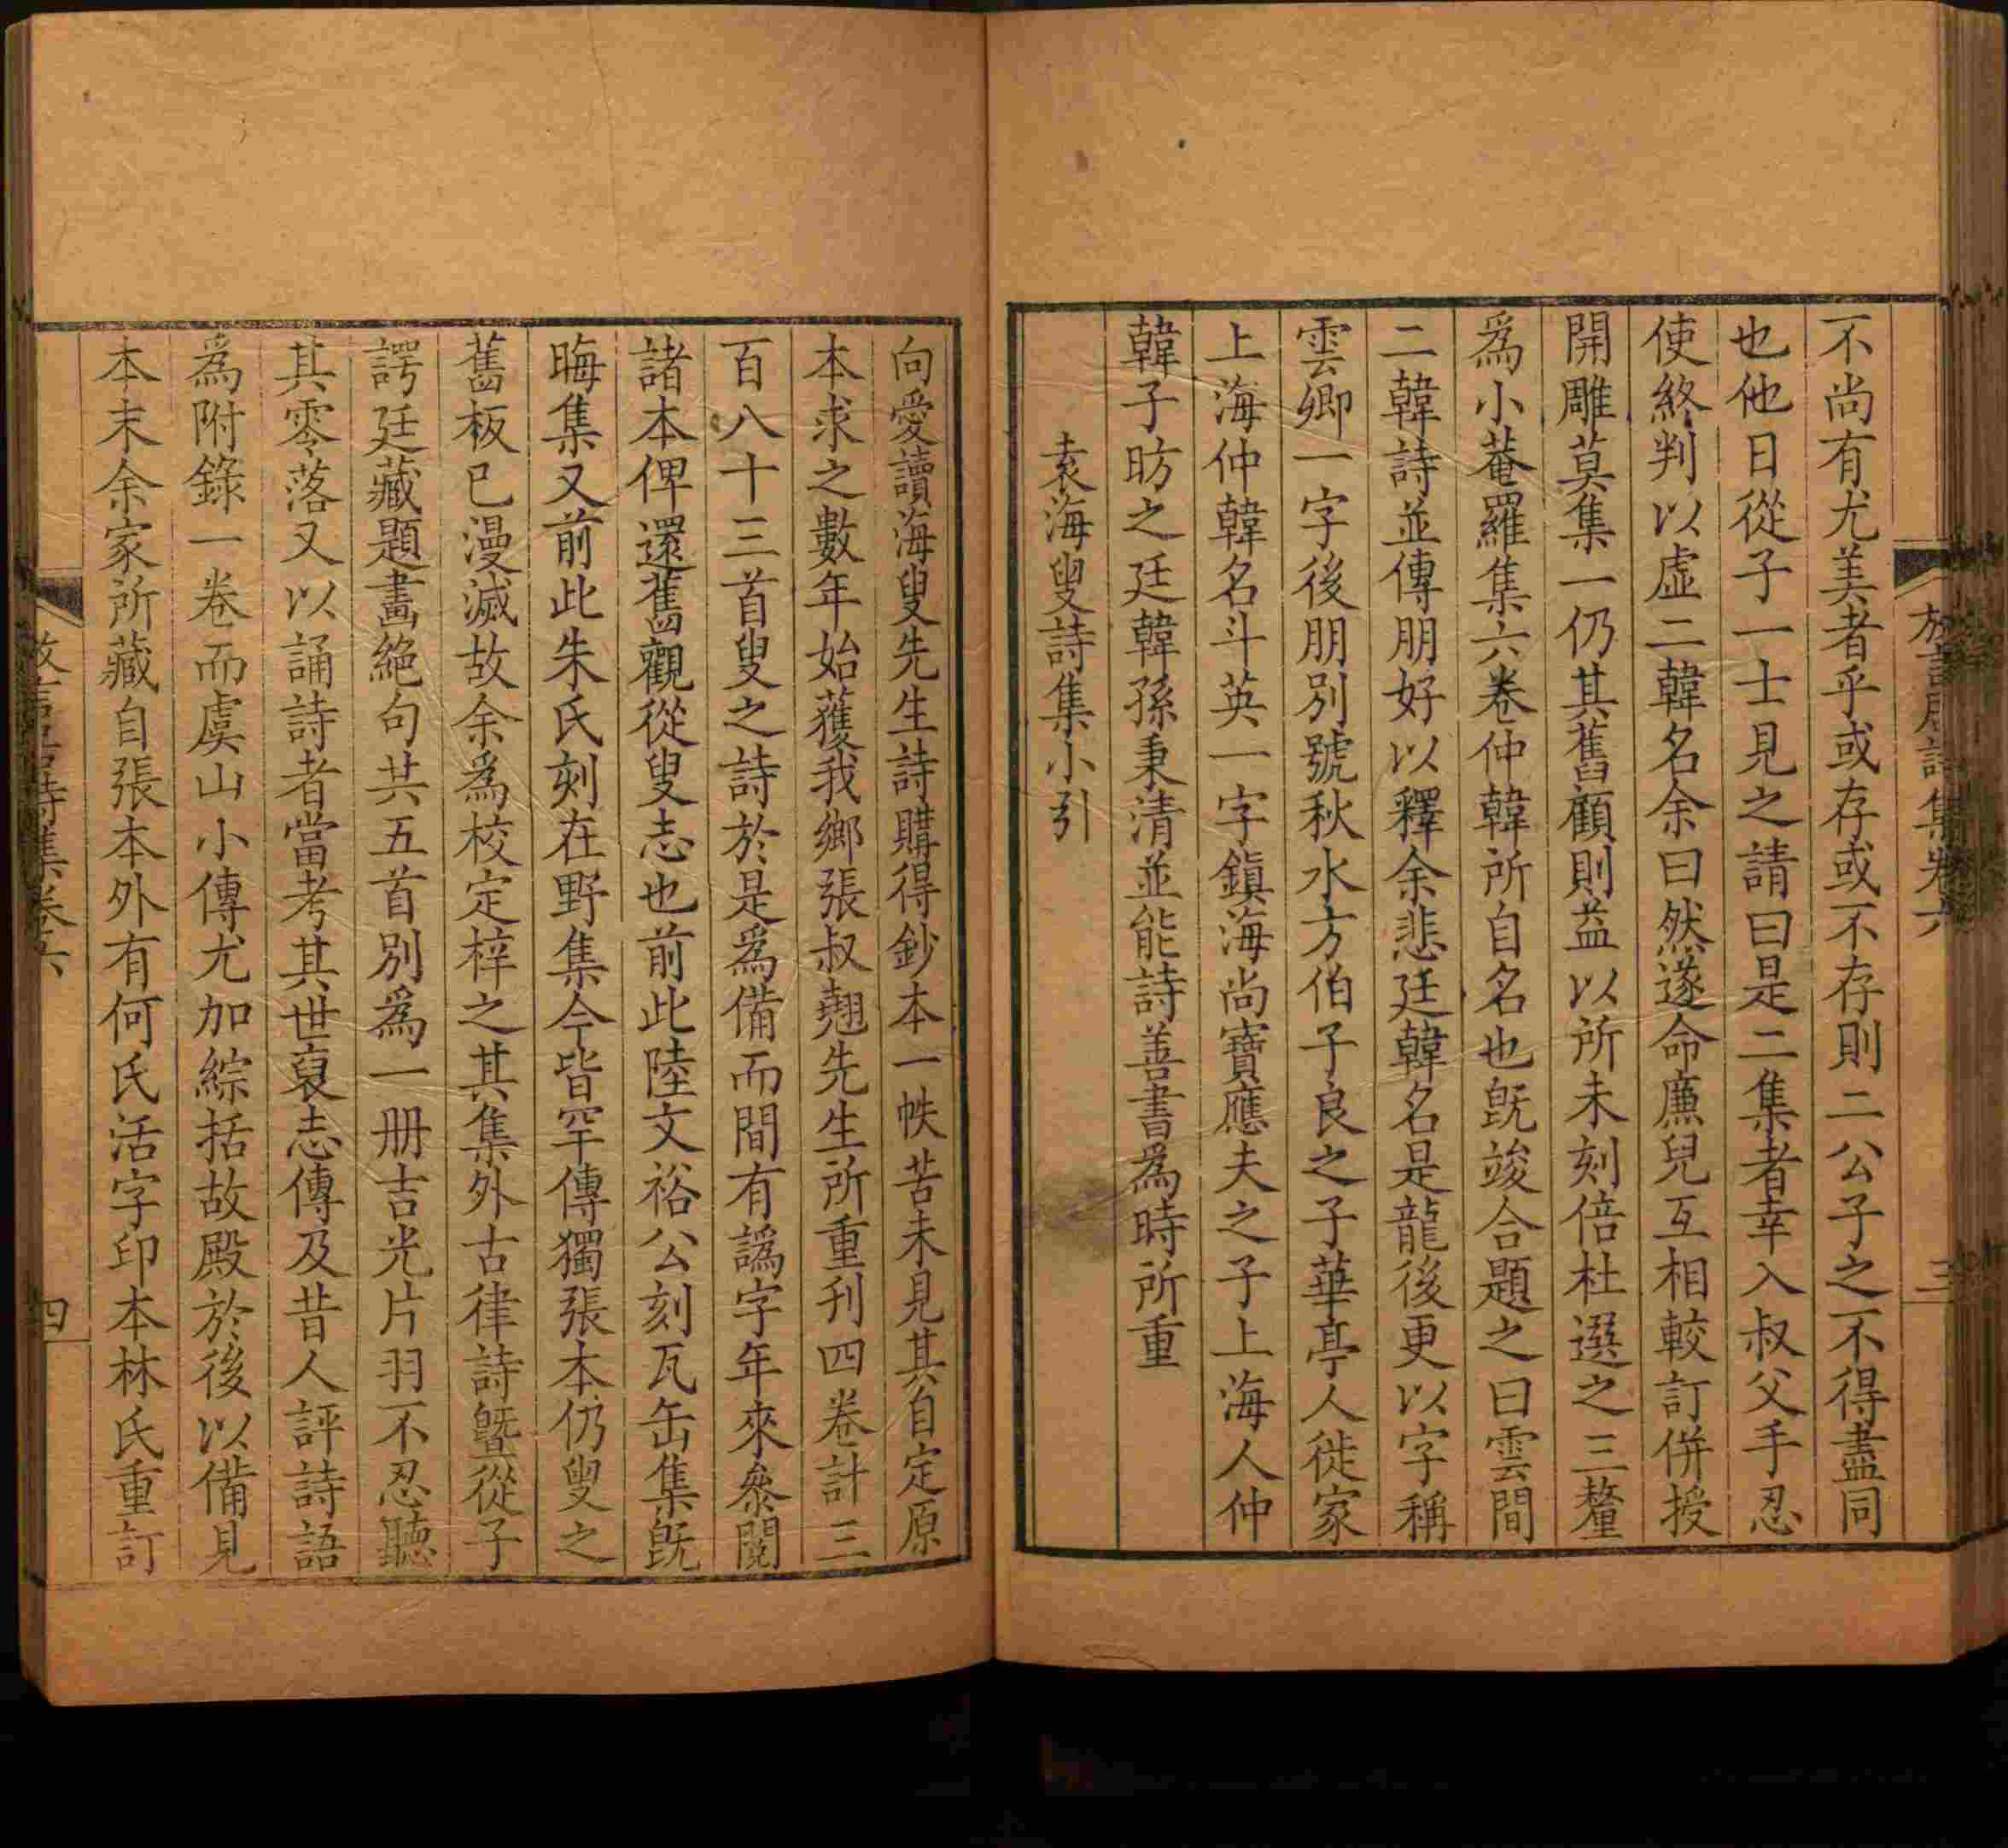 不尚有尤美者乎或存或不存則二公子之不得盡同
也他日從子一士見之請曰是二集者幸入叔父手忍
使終判以虛二韓名余曰然遂命廉兒互相較訂併授
開雕莫集一仍其舊顧則益以所未刻倍杜選之三釐
為小菴羅集六卷仲韓所自名也旣竣合題之曰雲間
二韓詩並傳朋好以釋余悲廷韓名是龍後更以字稱
雲卿一字後朋別號秋水方伯子良之子華亭人徙家
上海仲韓名斗英一字鎮海尚寶應夫之子上海人仲
韓子昉之廷韓孫秉清並能詩善書為時所重
袁海叟詩集小引
三
向愛讀海叟先生詩購得鈔本一帙苦未見其自定原
本求之數年始獲我鄉張叔翹先生所重刊四卷計三
百八十三首叟之詩於是為備而間有譌字年來叅閱
諸本俾還舊觀從叟志也前此陸文裕公刻瓦缶集旣
晦集又前此朱氏刻在野集今皆罕傳獨張本仍叟之
舊板已漫滅故余為校定梓之其集外古律詩曁從子
諤廷藏題畫絕句共五首別為一冊吉光片羽不忍聽
其零落又以誦詩者當考其世裒志傳及昔人評詩語
為附錄一卷而虞山小傳尤加綜括故殿於後以備見
本末余家所藏自張本外有何氏活字印本林氏重訂
四